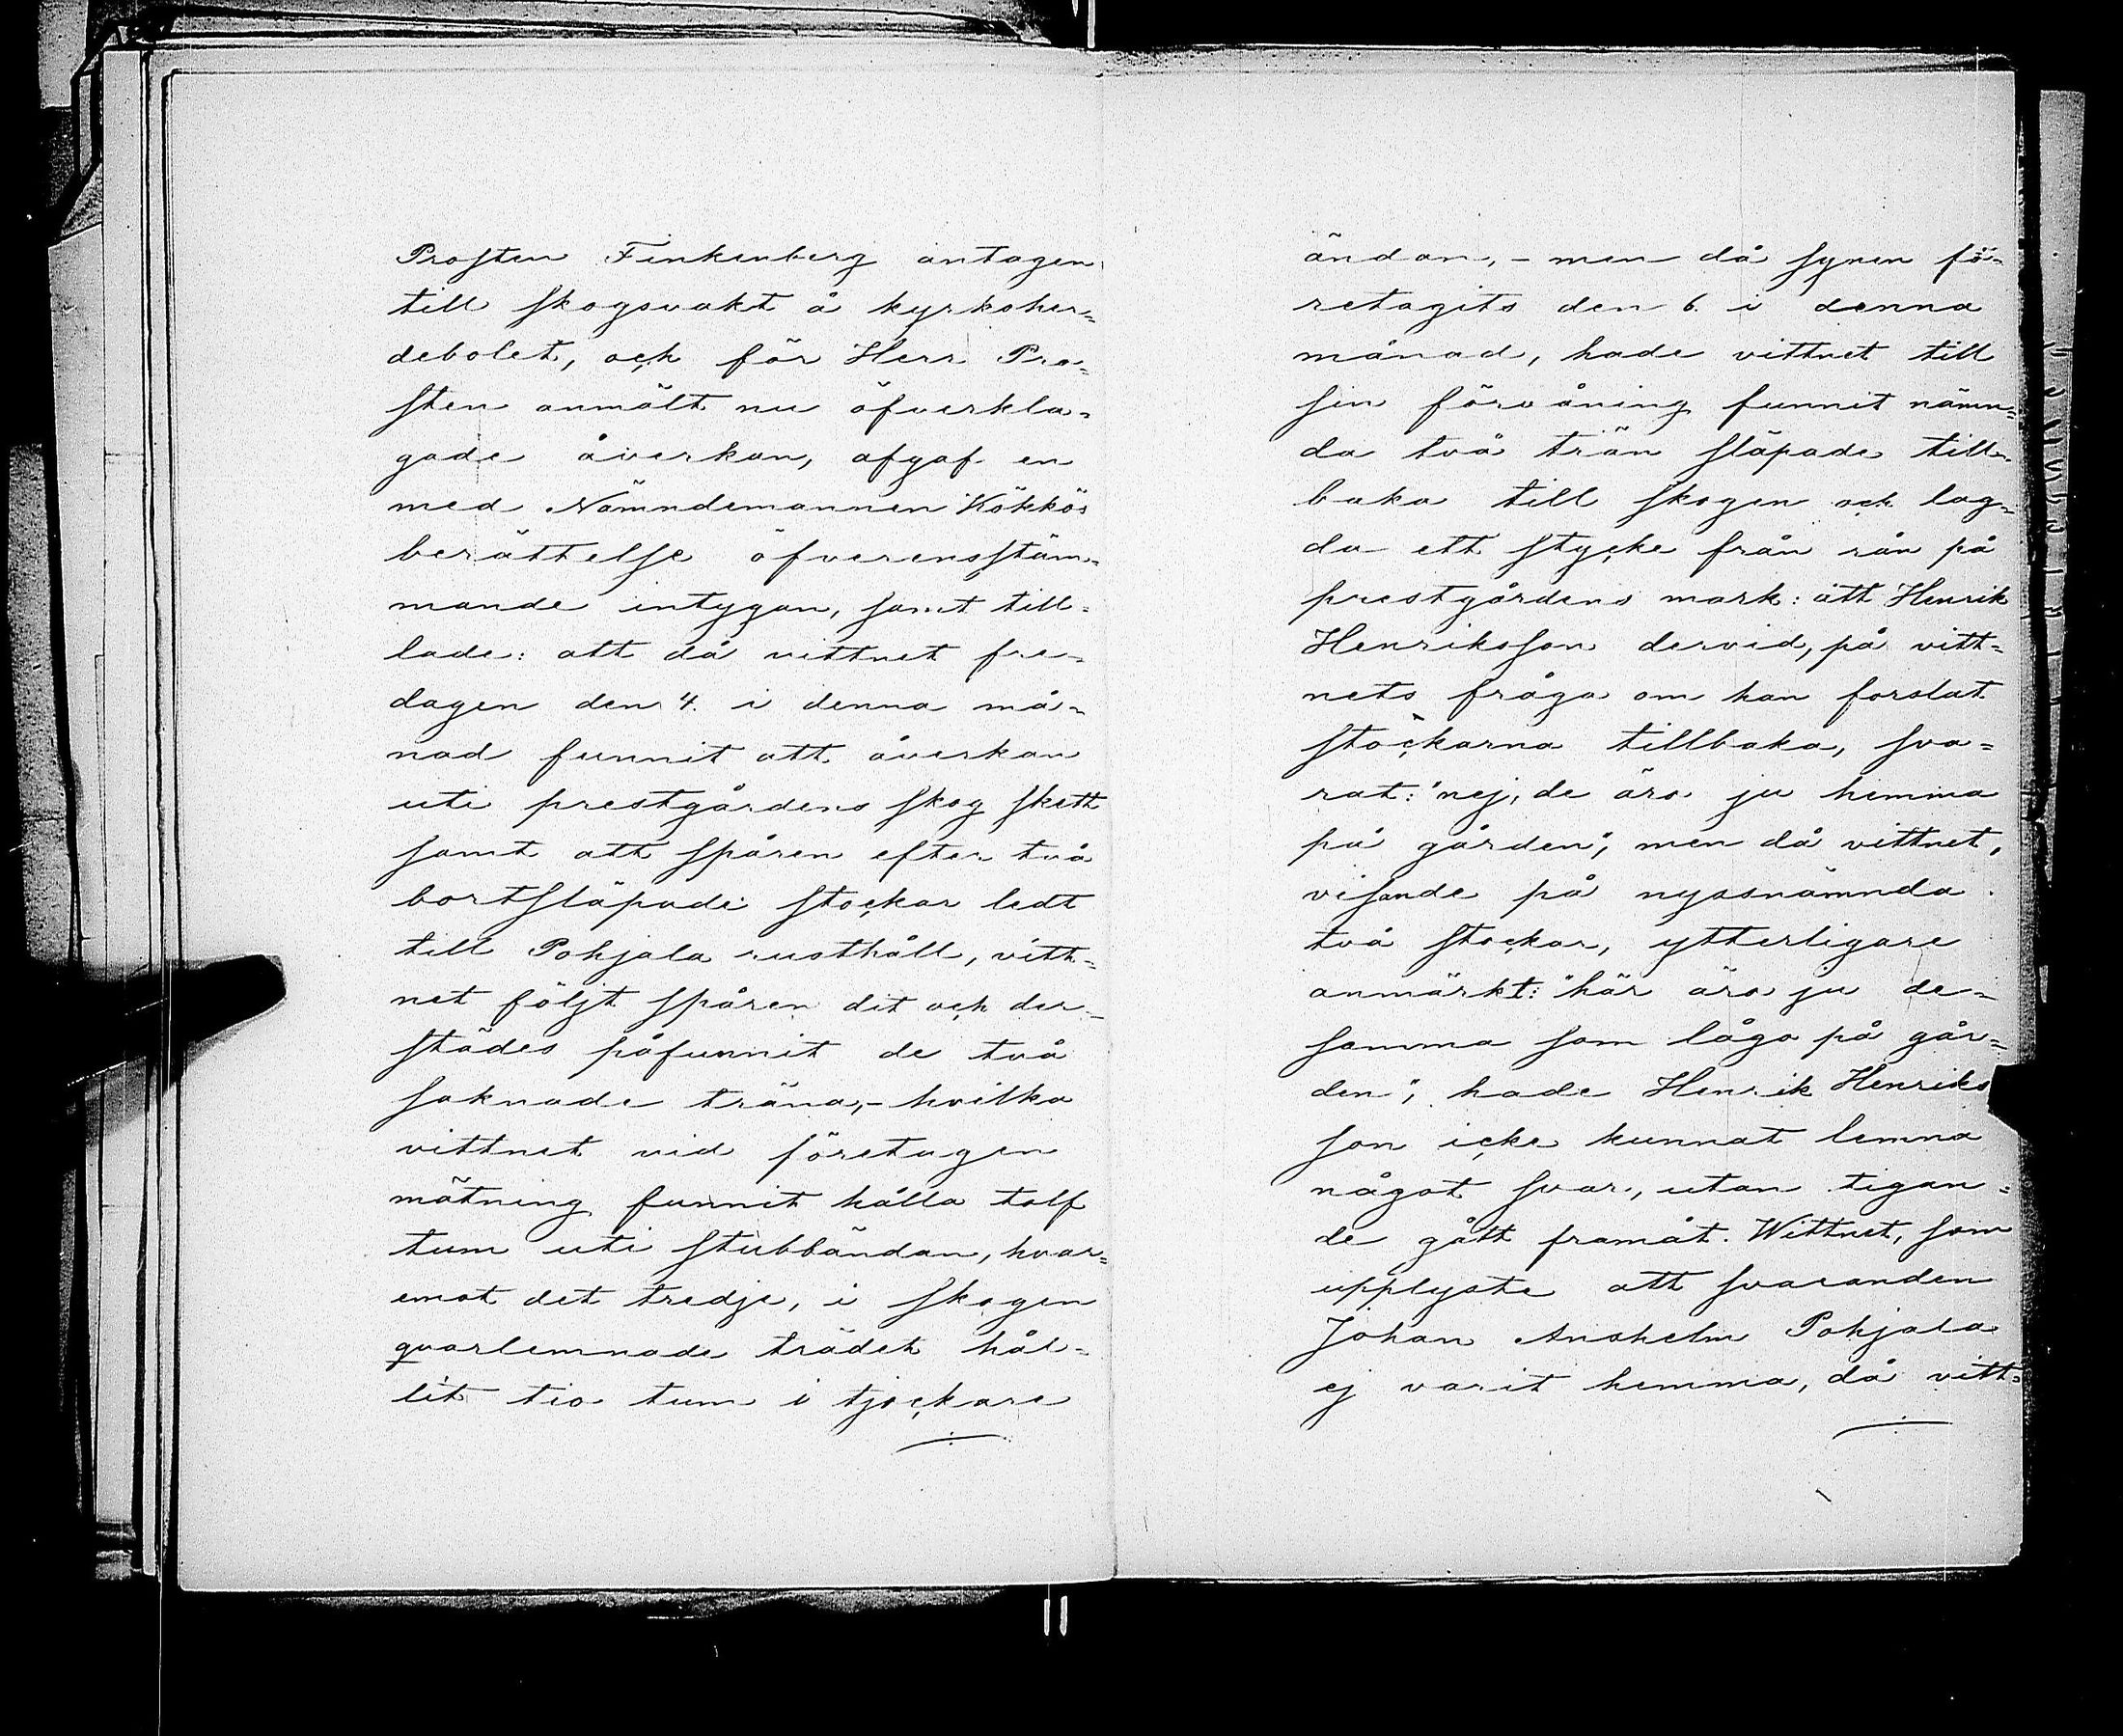 Prosten Finkenberg antagen
till skogsvakt å kyrkoher-
debolet, och för Herr Pro-
sten anmält nu öfverkla-
gade åverkan, afgaf en
med Nämndemannen Kökkös
berättelse öfverensstäm-
mande intygan, samt till-
lade: att då vittnet fre-
dagen den 4. i denna må-
nad funnit att åverkan
uti prestgårdens skog skett
samt att spåren efter två
bortsläpade stockar ledt
till Pohjala rusthåll, vitt-
net följt spåren dit och der-
städes påfunnit de två
saknade träna,- hvilka
vittnet vid företagen
mätning funnit hålla tolf
tum uti stubbändan, hvar-
emot det tredje, i skogen
qvarlemnade trädet hål-
lit tio tum i tjockare
ändan,- men då synen fö-
retagits den 6. i denna
månad, hade vittnet till
sin förvåning funnit nämn-
da två trän släpade till-
baka till skogen och lag-
da ett stycke från rån på
prestgårdens mark: att Henrik
Henriksson dervid, på vitt-
nets fråga om han forslat
stockarna tillbaka, sva-
rat: "nej, de äro ju hemma
på gården", men då vittnet,
visande på nyssnämnda
två stockar, ytterligare
anmärkt: "här äro ju de-
samma som lågo på går-
den", hade Henrik Henriks
son icke kunnat lemna
något svar, utan tigan-
de gått framåt. Wittnet, som
upplyste att svaranden
Johan Anshelm Pohjala
ej varit hemma, då vitt-